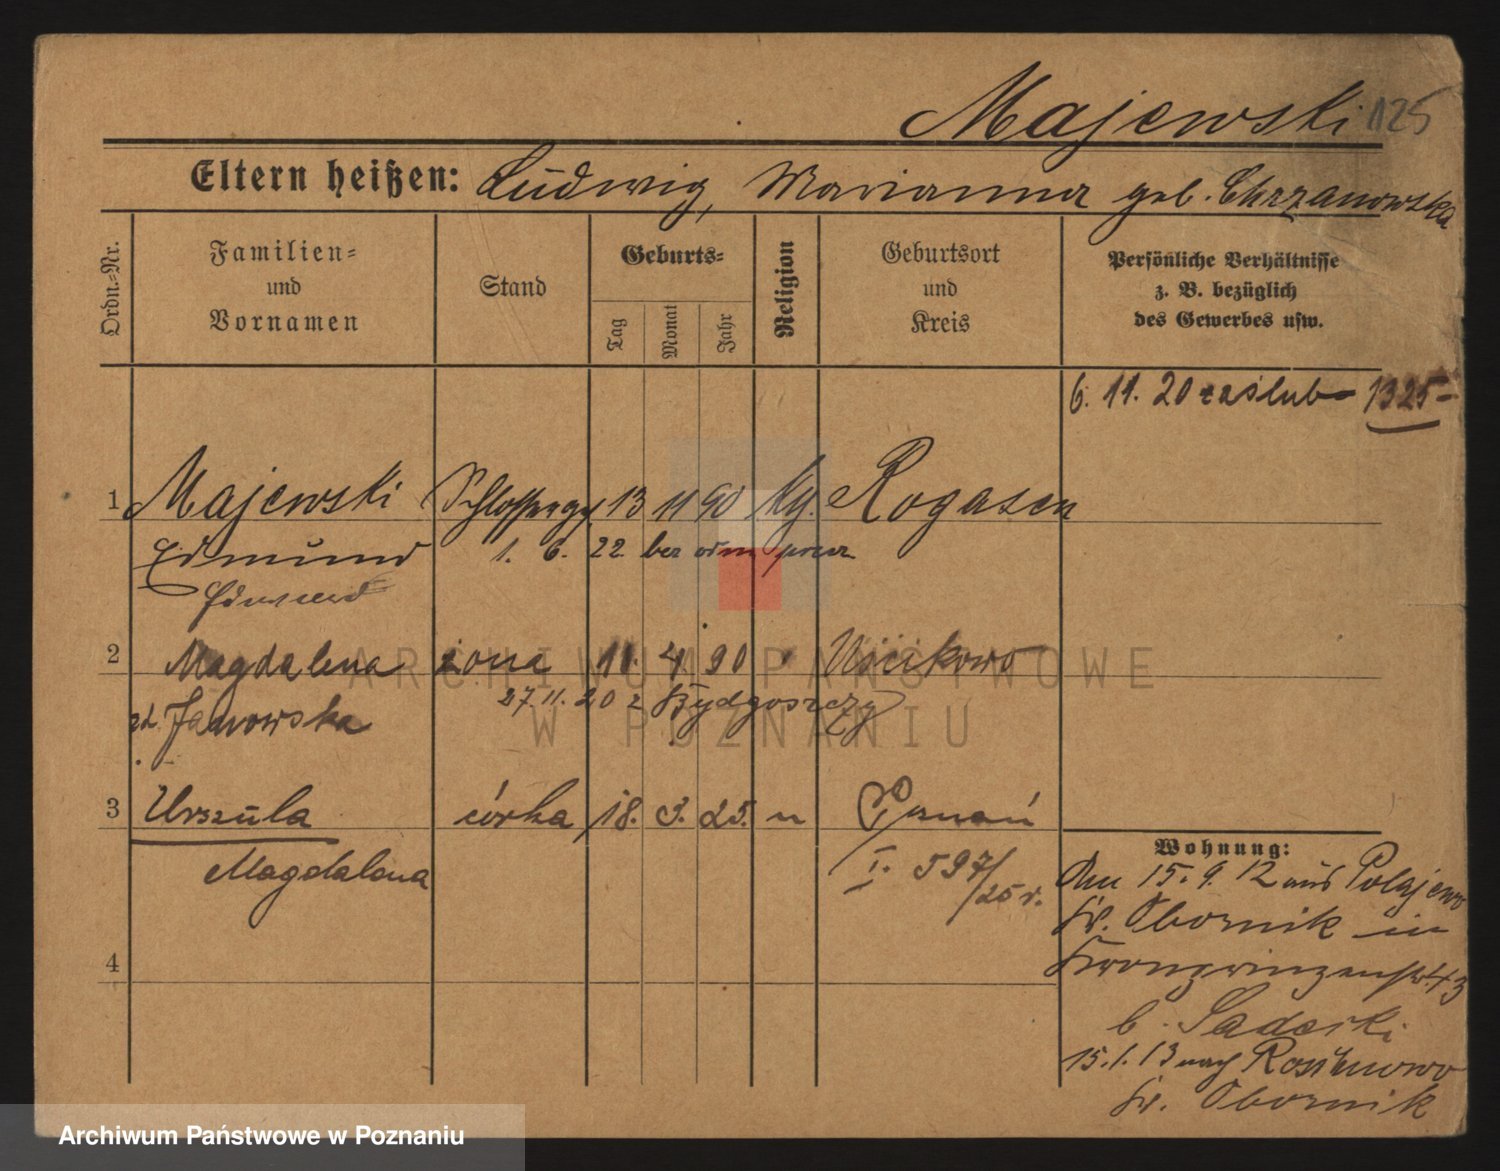 Majewski 125
Eltern heißen: Ludwig, Marianna geb. Chrzanowska
Ordn.=Nr.
Familien=
und
Vornamen
Stand
Geburts=
Tag
Monat
Jahr
Religion
Geburtsort
und
Kreis
Persönliche Verhältnisse
z. B. bezüglich
des Gewerbes usw.
6. 11. 20 zaślub 1325
1 Majewski Schlosserges. 13 11 90 kg. Rogasen
Edmund 1. 6. 22 bez
Edmund
2 Magdalena żona 11. 4 90
27.11.20 z Bydgoszczy
zd. Janowska
3 Urszula córka 18. 3. 25. Poznań
Magdalena I. 597/25 r.
4
Wohnung:
Den 15. 9. 12 aus Polajewo
Kr. Obornik in
Kronprinzenstr. 43
b. Sadorski
15. 1. 13 nach Rośnowo
Kr. Obornik
ARCHIWUM PAŃSTWOWE
W POZNANIU
Archiwum Państwowe w Poznaniu